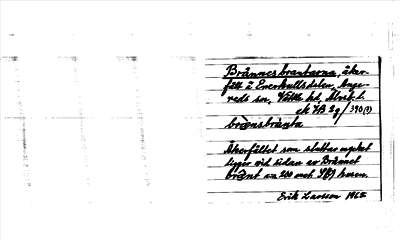 Brännesbrantarna, åker-
fält å Enerkullsdelen, Ange-
reds sn, Vättle hd, Älvsb. l.
ek 7B 2g / 390(?)
brännsbranta
Åkerfältet som sluttar mycket
ligger vid sidan av Brännet
bränt ca 200 met. husen.
Erik Larsson 1965